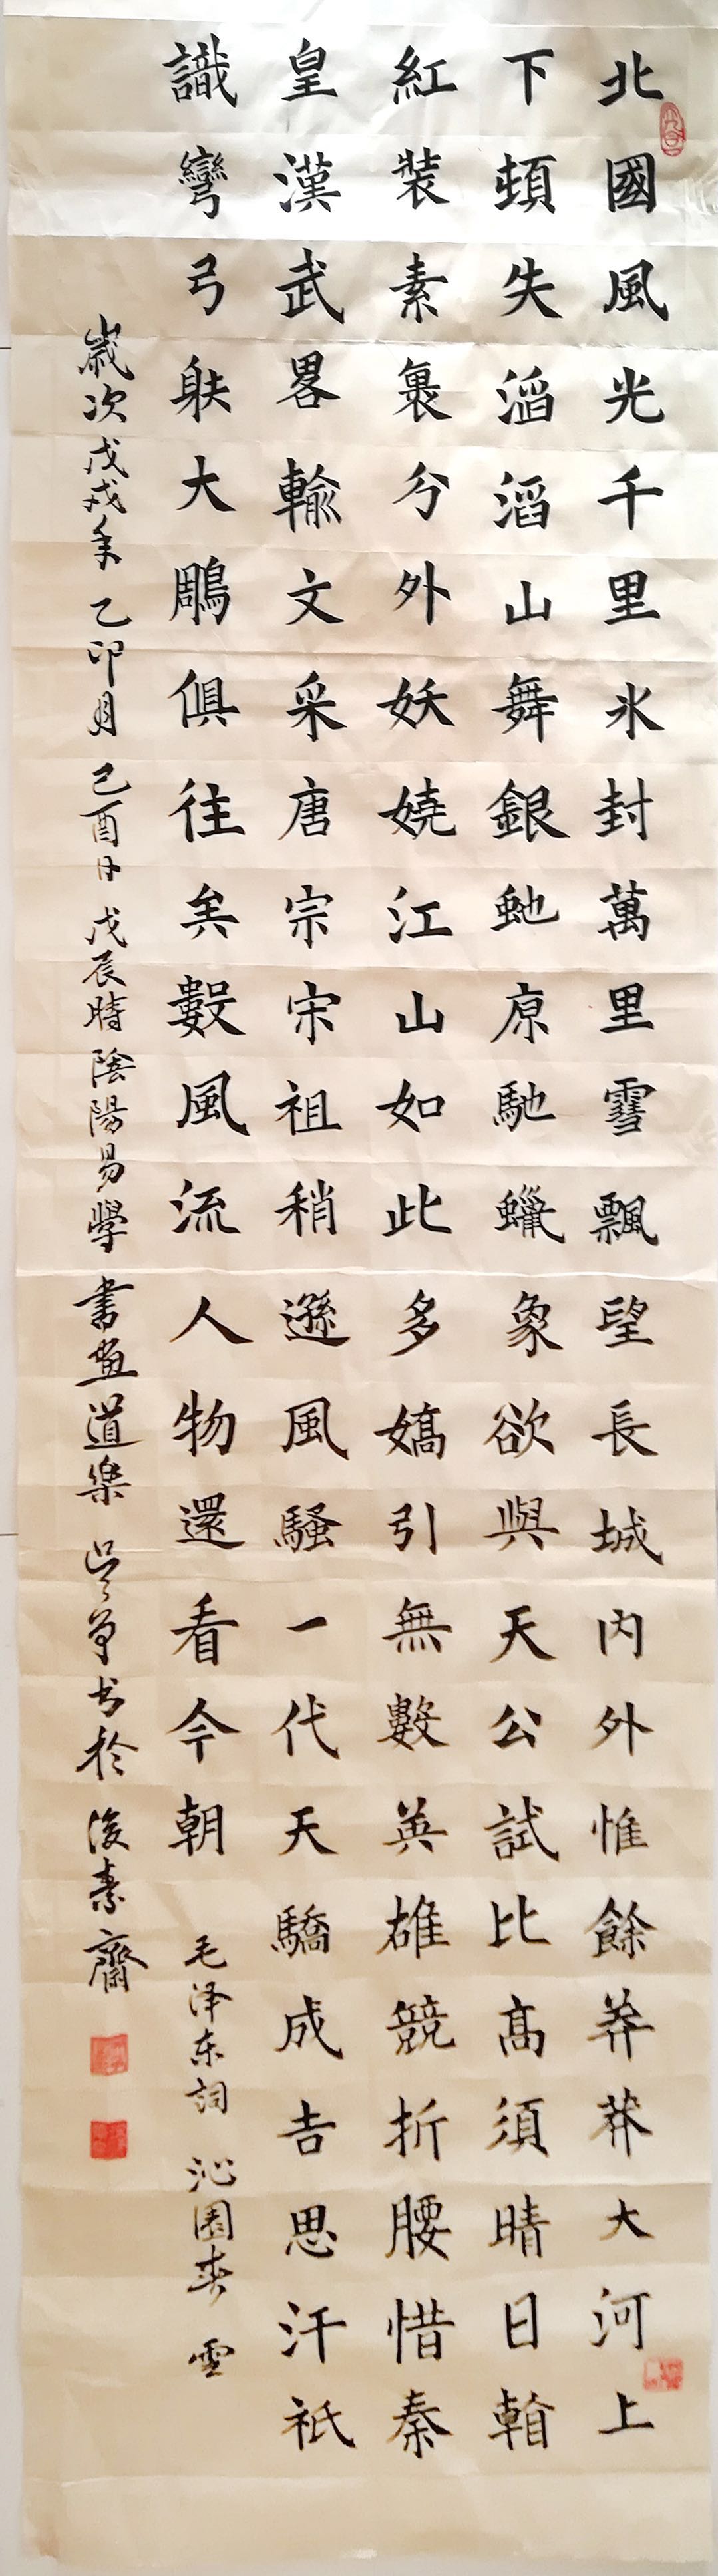 北國風光千里氷封萬里雪飄望長城內外惟餘莽莽大河上
下頓失滔滔山舞銀虵原馳蠟象欲與天公試比高須晴日看
紅裝素裹分外妖嬈江山如此多嬌引無數英雄競折腰惜秦
皇漢武畧輸文采唐宗宋祖稍遜風騷一代天驕成吉思汗祇
識彎弓躲大鵰俱往矣數風流人物還看今朝
毛泽东詞 沁園春 雪
歲次戊戌年 乙卯月 己酉日 戊辰時 陰陽易學 書畫道樂 书於 齋